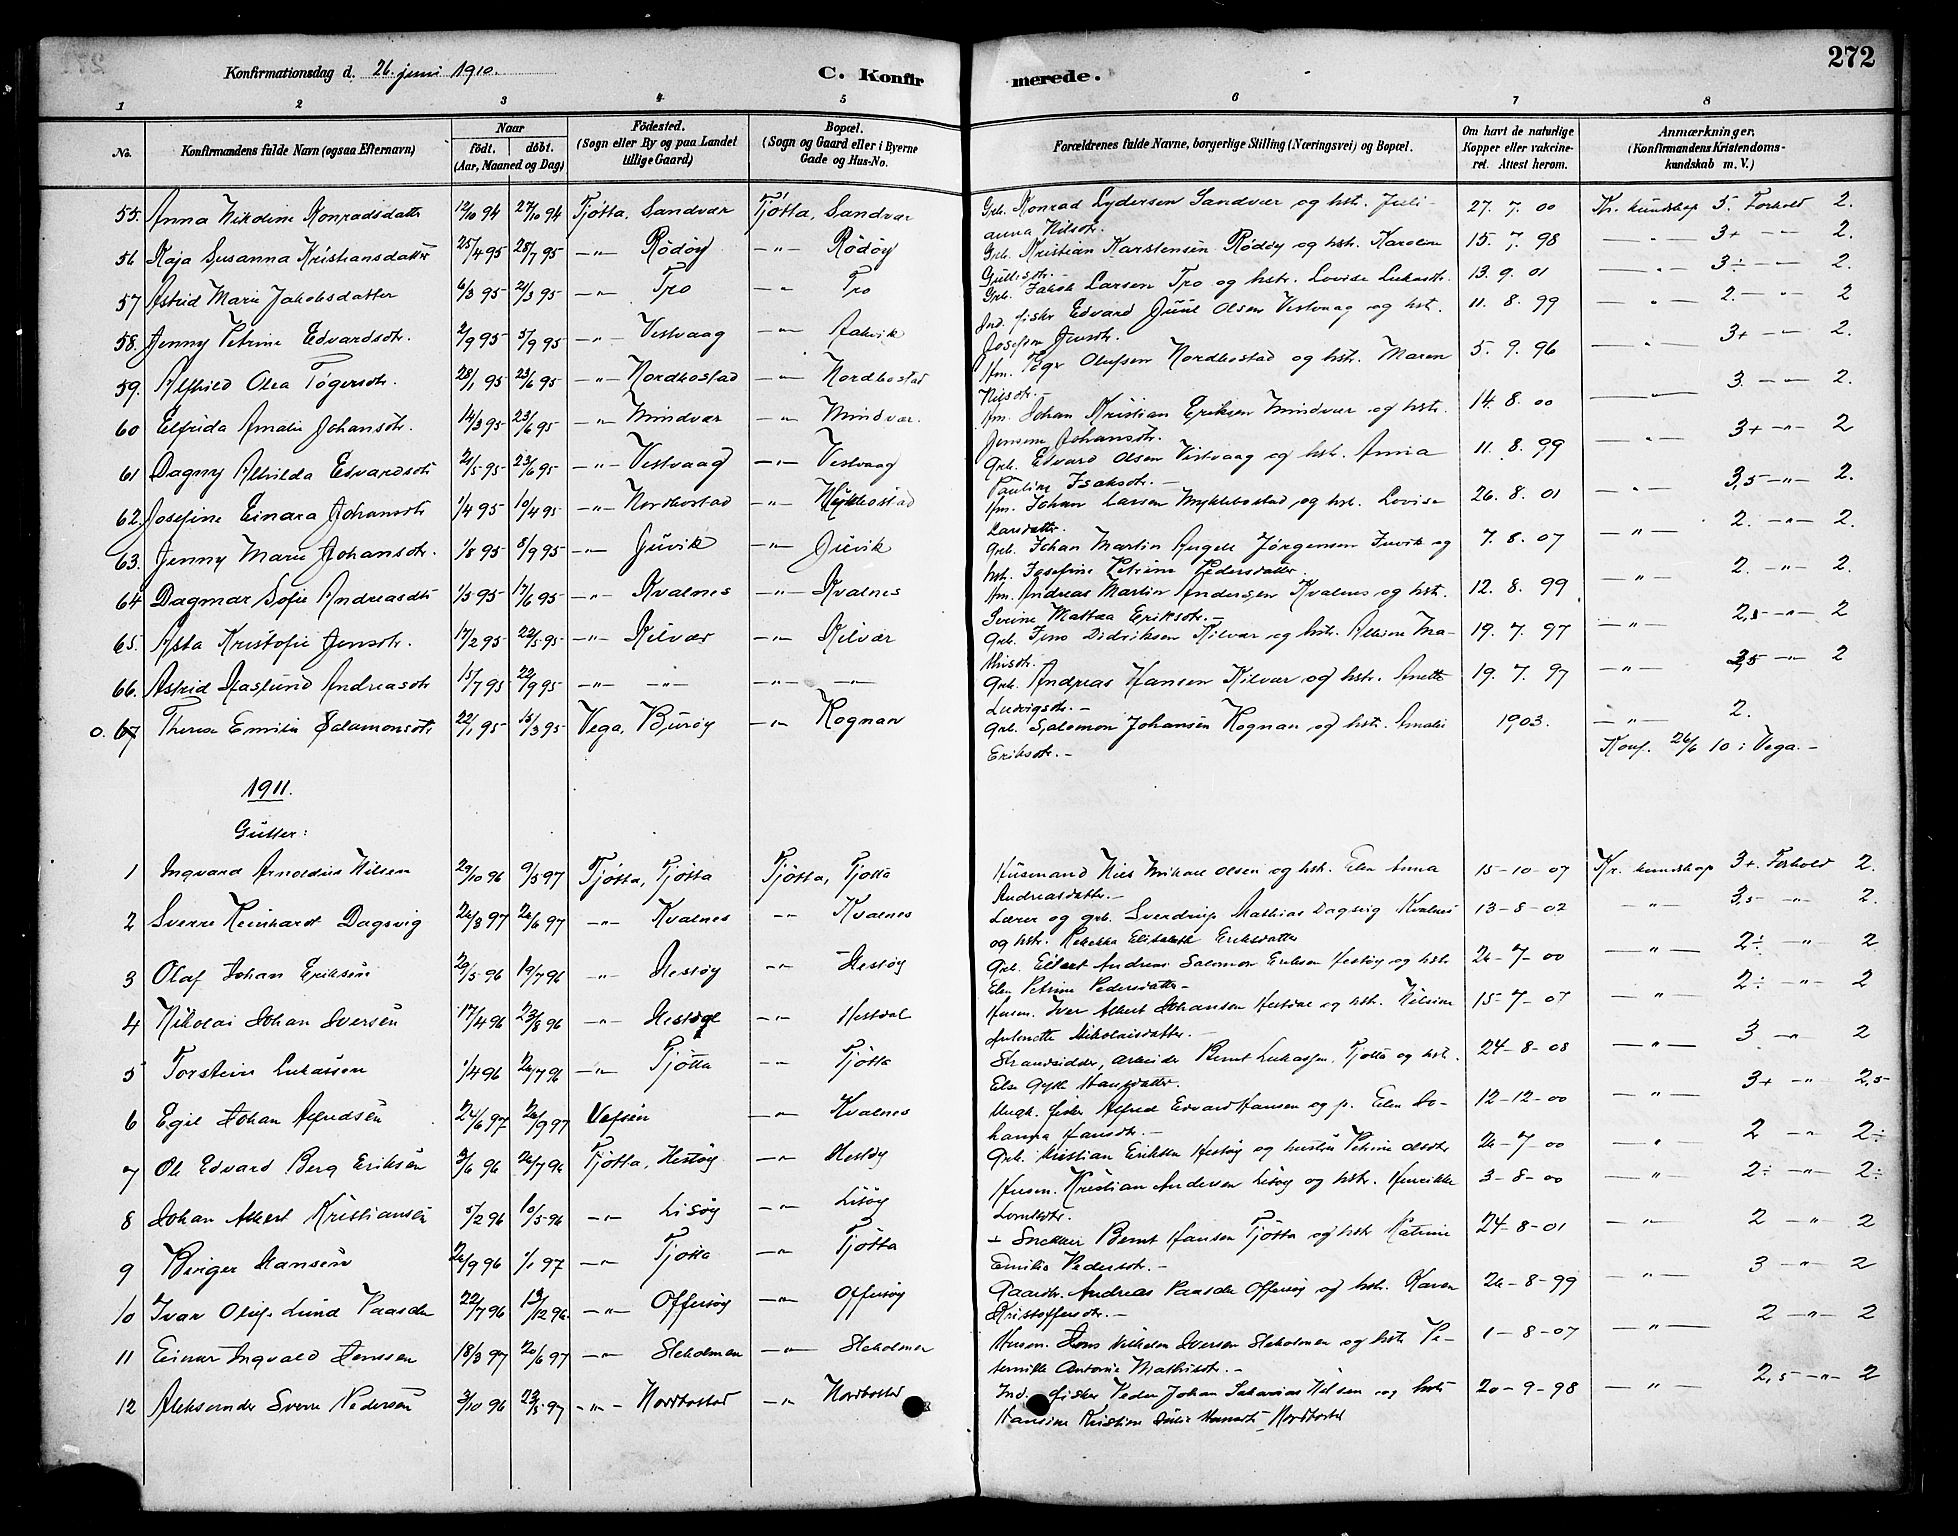 272
Konfirmationsdag d. 26. juni 1910. C. Konfirmerede.
1 2 3 4 5 6 7 8
No. Konfirmandens fulde Navn (ogsaa Efternavn) Naar Født. døbt. (Aar, Maaned og Dag) Fødested. (Sogn eller By og paa Landet tillige Gaard) Bopæl. (Sogn og Gaard eller i Byerne Gade og Hus-No. Forældrenes fulde Navne, borgerlige Stilling (Næringsvei) og Bopæl. Om havt de naturlige Kopper eller vakcineret. Attest herom. Anmærkninger, (Konfirmandens Kristendomskundskab m. V.)
55. Anna Nikoline Konradsdatter 12/10 94 27/10 94 Tjøtta, Sandvær Tjøtta, Sandvær Grb. Konrad Lydersen Sandvær og hst. Juli- 27. 7. 00 Kr. kundskap 3. Forhold 2.
anna Nilsdtr.
56 Kaja Susanna Kristiansdatter 25/4 95 28/7 95 -"- Rødøy -"- Rødøy Grb. Kristian Karstensen Rødøy og hst. Karoline 15. 7. 98 -"- 3+ -"- 2.
57 Astrid Marie Jakobsdatter 6/3 95 21/3 95 -"- Tro -"- Tro Grb. Jakob Larsen Tro og hstr. Lovise Lukasdtr. 13. 9. 01 -"- 3÷ -"- 2.
58. Jenny Petrine Edvardsdtr. 2/9 95 5/9 95 -"- Vestvaag -"- Aakvik Ind. fisker Edvard Juul Olsen Vestvaag og hst. 11. 8. 99 -"- 2. -"- 2
Josefine Jensdtr.
59. Alfhild Olea Tøgersdtr. 28/1 95 23/6 95 -"- Nordbostad -"- Nordbostad Hm. Tøger Olufsen Nordbostad og hst. Maren 5. 9. 96 -"- 3+ -"- 2.
Nilsdtr.
60 Elfrida Amalie Johansdtr. 14/3 95 23/6 95 -"- Mindvær -"- Mindvær. Hm. Johan Kristian Eriksen Mindvær og hst. 14. 8. 00 -"- 3. -"- 2.
Jensine Johansdtr.
61 Dagny Alvilda Edvardsdtr 21/5 95 23/6 95 -"- Vestvaag -"- Vestvaag Grb. Edvard Olsen Vestvaag og hst. Anna 11. 8. 99 -"- 3+ -"- 2
Pauline Isaksdtr. -
62. Josefine Einara Johansdtr 1/4 95 10/4 95 -"- Nordbostad -"- Myklebostad Hm. Johan Larsen Myklebostad og hst. Lovise 26. 8. 01 -"- 3,5 -"- 2.
Larsdatter.
63. Jenny Marie Johansdtr. 1/8 95 8/9 95 -"- Juvik -"- Juvik Grb. Johan Martin Angell Jørgensen Juvik og 7. 8. 07 -"- 2. -"- 2.
hst. Josefine Petrine Pedersdatter.
64 Dagmar Sofie Andreasdtr 1/5 95 17/6 95 -"- Kvalnes -"- Kvalnes Hm. Andreas Martin Andersen Kvalnes og hst. 12. 8. 99 -"- 2. -"- 2.
Serine Mattea Eriksdtr. -
65. Asta Kristofie Jensdtr. 17/2 95 22/5 95 -"- Kilvær -"- Kilvær Grb. Jens Didriksen Kilvær og hst. Albine Ma- 19. 7. 97 -"- 2,5 -"- 2
thisdtr.
66. Astrid Aaslund Andreasdtr 15/7 95 22/9 95 -"- -"- -"- -"- Grb. Andreas Hansen Kilvær og hst. Anette 19. 7. 97 -"- 3,5 -"- 2
Ludvigsdtr. -
0. 67 Therese Emilie Salamonsdtr 22/1 95 15/3 95 Vega, Burøy -"- Rognan Grb. Salomon Johansen Rognan og hst. Amalie 1903. -"- 2.
Eriksdtr. - Konf. 26/6 10 i Vega. -
1911.
Gutter:
1 Ingvard Arnoldus Nilsen 29/10 96 9/5 97 Tjøtta, Tjøtta Tjøtta, Tjøtta Husmand Nils Mikael Olsen og hst. Elen Anna 15-10-07 Kr. kundskap 3+. Forhold 2.
Andreasdatter. -
2 Sverre Reinhardt Dagsvig 26/3 97 26/6 97 -"- Kvalnes -"- Kvalnes Lærer og grb. Sverdrup Mathias Dagsvig Kvalnes 13-8-02 -"- 3,5 -"- 2.
og hst. Rebekka Elisabeth Eriksdatter
3 Olaf Johan Eriksen 29/5 96 19/7 96 -"- Hestøy -"- Hestøy Grb. Edvart Andreas Salomon Eriksen Hestøy og hst 26-7-00 -"- 2÷ -"- 2
Elen Petrine Pedersdatter -
4 Nikolai Johan Iversen 17/4 96 23/8 96 -"- Hestdal -"- Hestdal Husm. Iver Albert Johansen Hestdal og hst. Nilsine 15-7-07 -"- 2÷ -"- 2
Antonette Nikolaisdatter. -
5 Torstein Lukassen 1/4 96 26/7 96 -"- Tjøtta -"- Tjøtta Strandsidder, arbeider Bernt Lukassen, Tjøtta og hst. 24-8-08 -"- 3 -"- 2
Else Gyth Hansdatter.
6 Egil Johan Alfredsen 24/6 97 26/9 97 Vefsen -"- Kvalnes Ungk. fisker Alfred Edvard Hansen og p. Elen Jo- 12-12-00 -"- 3+ -"- 2,5
hanna Hansdtr. -
7 Ole Edvard Berg Eriksen 3/6 96 26/7 96 Tjøtta, Hestøy -"- Hestøy Grb. Kristian Eriksen Hestøy og hustru Petrine Olsdtr 26-7-00 -"- 2 -"- 2÷
8 Johan Albert Kristiansen 5/2 96 10/5 96 -"- Lisøy -"- Lisøy Husm. Kristian Andersen Lisøy og hst. Henrikke 3-8-00 -"- 2÷ -"- 2÷
9 Birger Hansen 26/9 96 1/1 97 -"- Tjøtta -"- Tjøtta + Snekker Bernt Hansen Tjøtta og hst Katrine 24-8-01 -"- 2 -"- 2
Emilie Pedersdtr. -
10 Ivar Oluf Lund Paasche 22/7 96 13/12 96 -"- Offersøy -"- Offersøy Gaardbr. Andreas Paasche Offersøy og hst. Karen 26-8-99 -"- 3 -"- 2
Kristoffersdtr. -
11 Einar Ingvald Jenssen 18/3 97 20/6 97 -"- Sleholmen -"- Sleholmen Husm. Jens Vilhelm Iversen Sleholmen og hst Pe- 1-8-07 -"- 2 -"- 2
ternille Antonie Mathisdtr. -
12 Aleksander Sverre Pedersen 3/10 96 23/5 97 -"- Nordbostad -"- Nordbostad Ind. fisker Peder Johan Sakarias Nilsen og hst 20-9-98 -"- 2,5 -"- 2
Hansine Kristine Julie Nordbostad